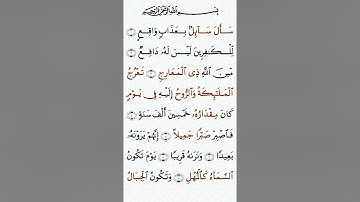 بِسْمِ ٱللَّهِ ٱلرَّحْمَٰنِ ٱلرَّحِيمِ
سَأَلَ سَآئِلٌۢ بِعَذَابٍ وَاقِعٍ ۝١
لِّلْكَٰفِرِينَ لَيْسَ لَهُۥ دَافِعٌ ۝٢
مِّنَ ٱللَّهِ ذِى ٱلْمَعَارِجِ ۝٣ تَعْرُجُ
ٱلْمَلَٰٓئِكَةُ وَٱلرُّوحُ إِلَيْهِ فِى يَوْمٍ
كَانَ مِقْدَارُهُۥ خَمْسِينَ أَلْفَ سَنَةٍ ۝٤
فَٱصْبِرْ صَبْرًا جَمِيلًا ۝٥ إِنَّهُمْ يَرَوْنَهُۥ
بَعِيدًا ۝٦ وَنَرَىٰهُ قَرِيبًا ۝٧ يَوْمَ تَكُونُ
ٱلسَّمَآءُ كَٱلْمُهْلِ ۝٨ وَتَكُونُ ٱلْجِبَالُ